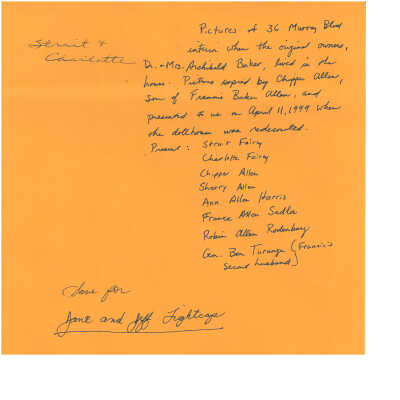 Struit &
Charlotte
Pictures of 36 Murray Blvd
interior when the original owners,
Dr. + Mrs. Archibald Baker, lived in the
house. Pictures copied by Chipper Allen,
son of Frannie Baker Allen, and
presented to us on April 11, 1999 when
the dollhouse was redecorated.
Present: Struit Fairey
Charlotte Fairey
Chipper Allen
Sherry Allen
Ann Allen Harris
France Allen Sadler
Robin Allen Rodenberg
Gen. Ben Turnage (Francis's
second husband)
Save for
Jane and Jeff Lightcap